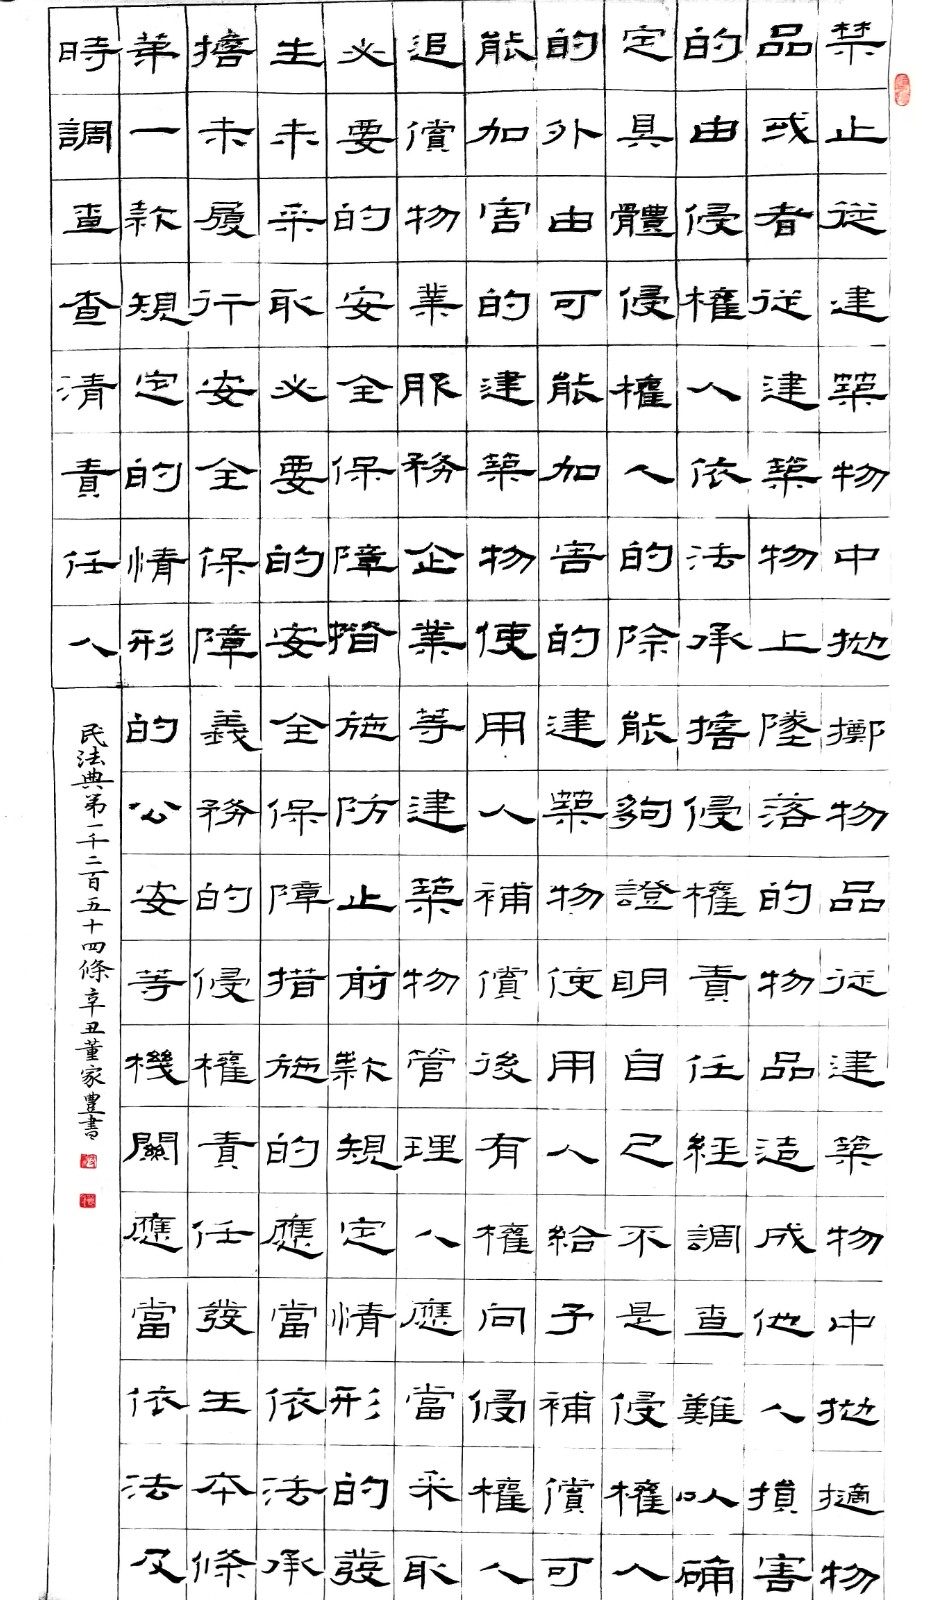 禁止從建築物中拋擲物品從建築物中拋擿物
品或者從建築物上墜落的物品造成他人損害
的由侵權人依法承擔侵權責任經調查難以确
定具體侵權人的除能夠證明自己不是侵權人
的外由可能加害的建築物使用人給予補償可
能加害的建築物使用人補償後有權向侵權人
追償物業服務企業等建築物管理人應當采取
必要的安全保障措施防止前款規定情形的發
生未采取必要的安全保障措施的應當依法承
擔未履行安全保障義務的侵權責任發生本條
第一款規定的情形的公安等機關應當依法及
時調查查清責任人
民法典第一千二百五十四條辛丑董家豐書